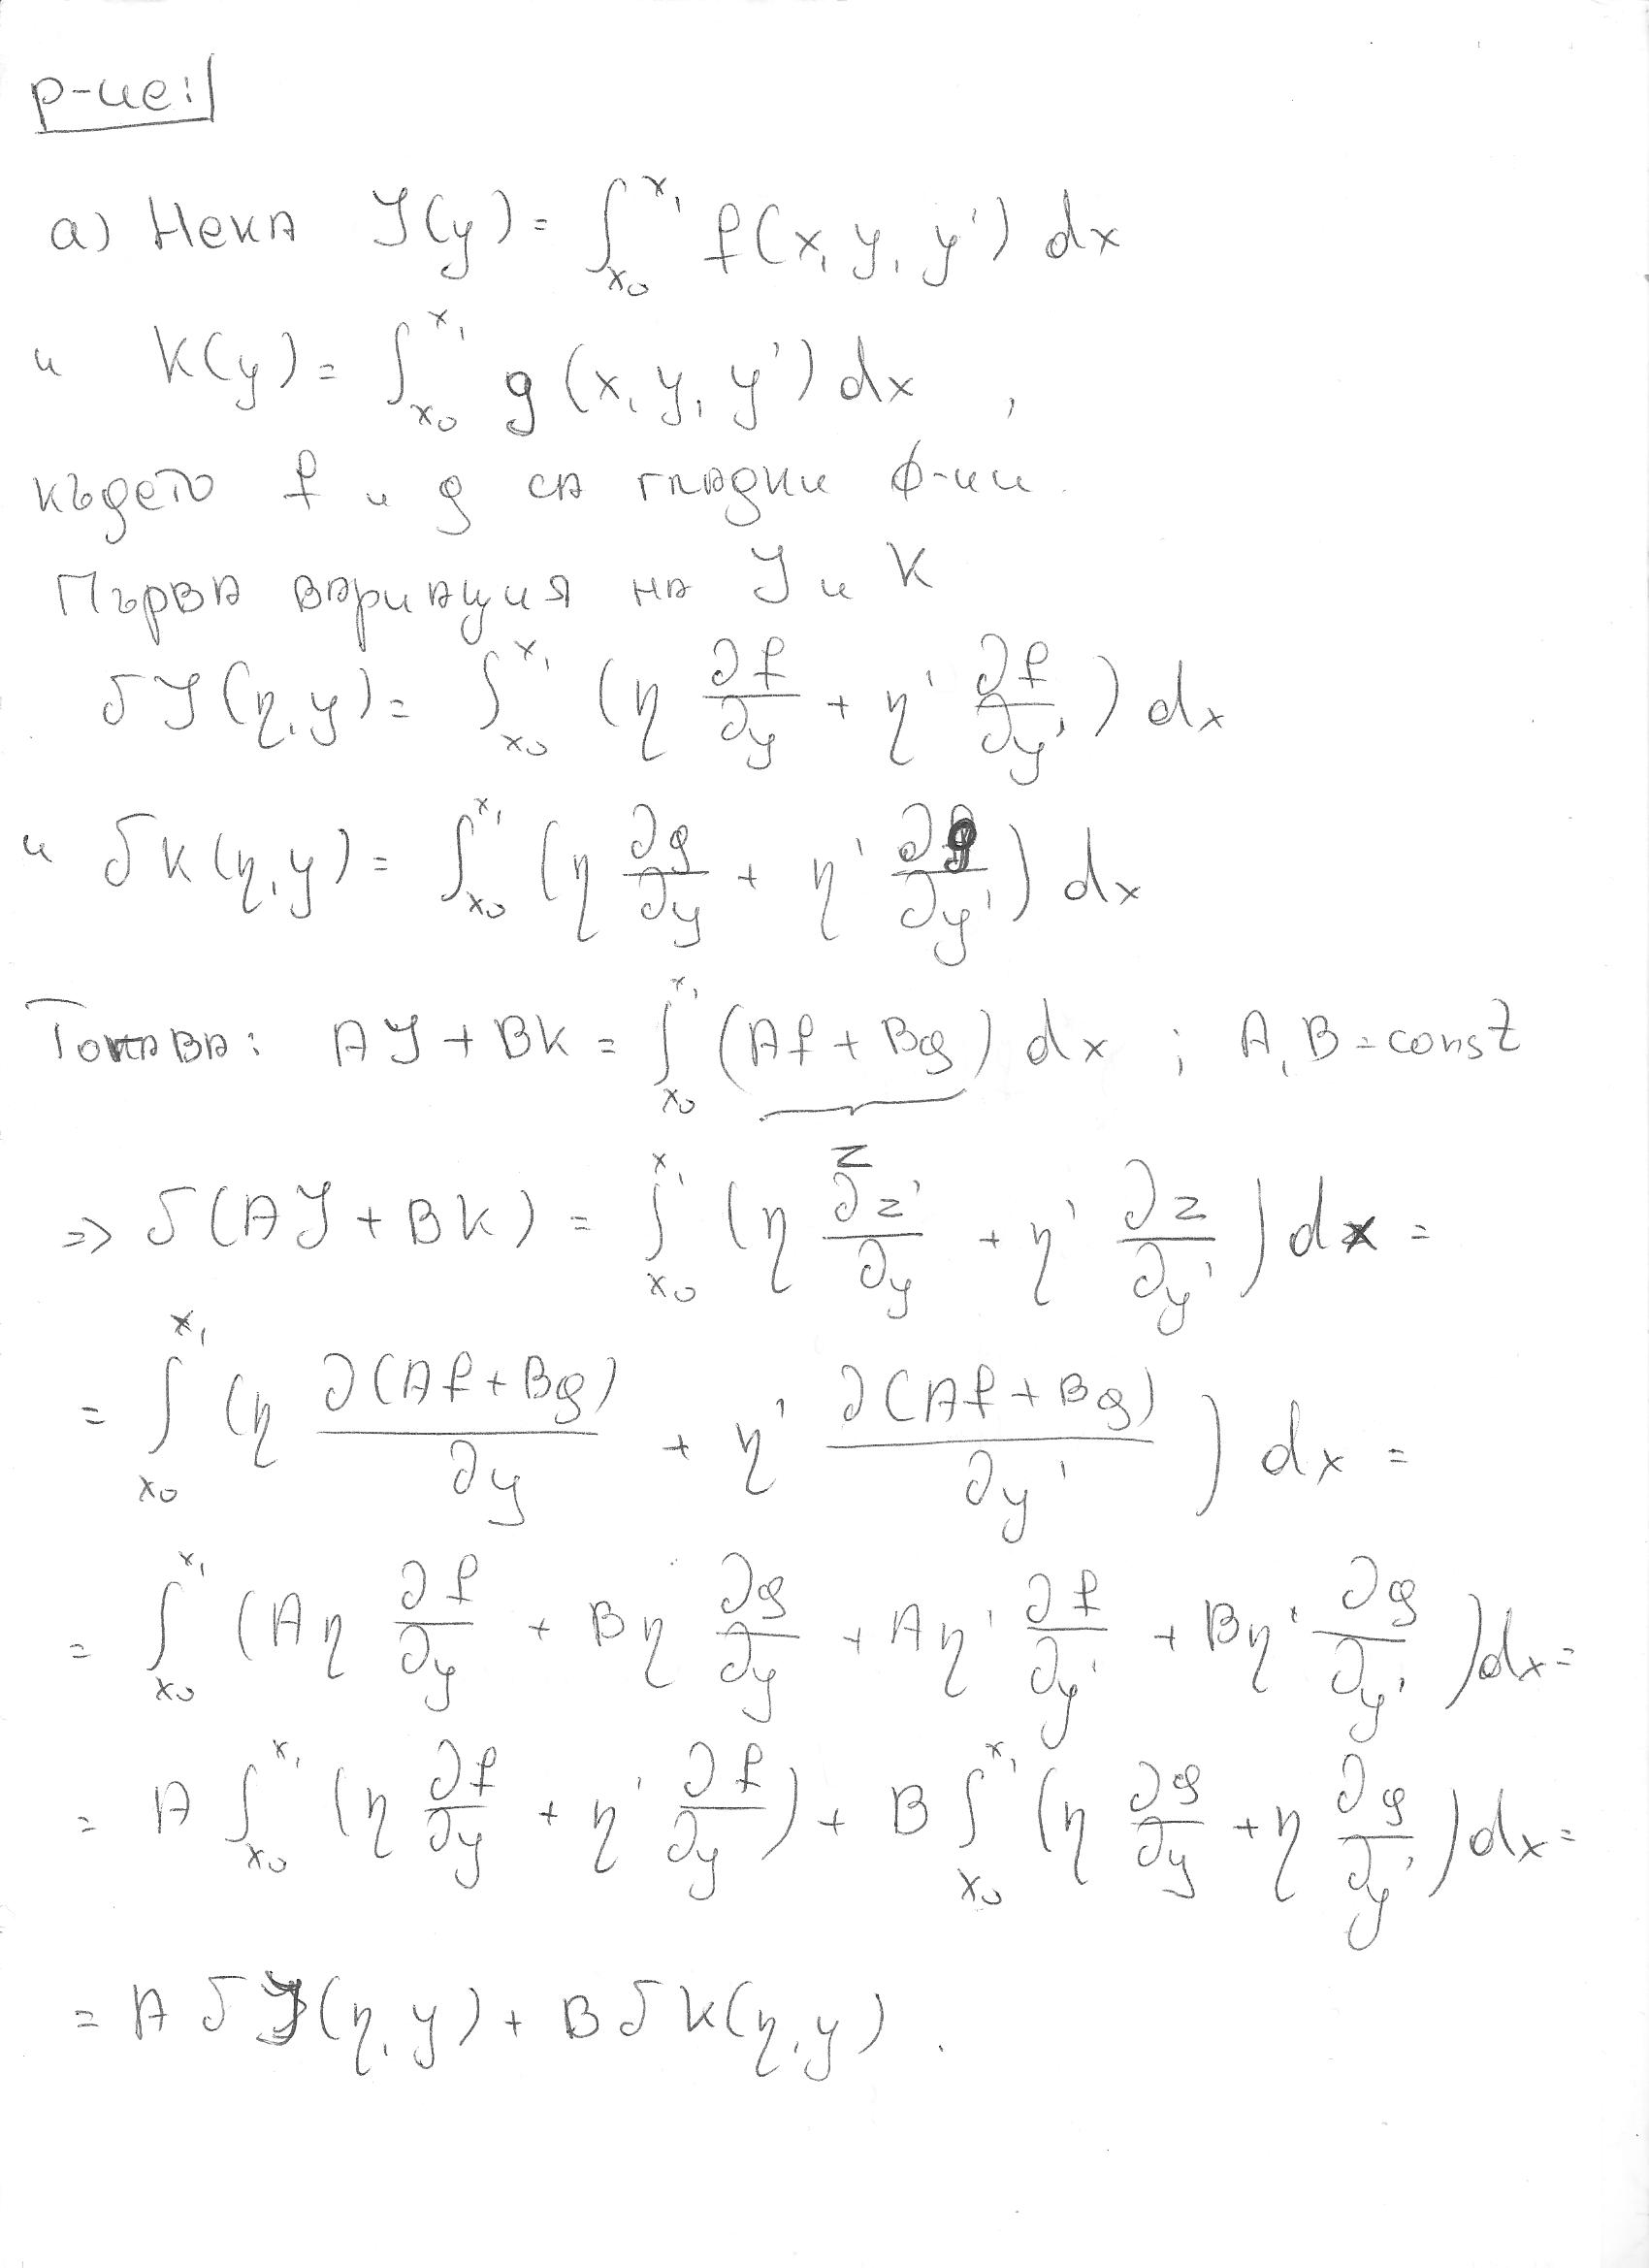 р-ие:
а) Нека J(y) = ∫_{x₀}^{x₁} f(x, y, y') dx
и K(y) = ∫_{x₀}^{x₁} g(x, y, y') dx ,
където f и g са гладки ф-ии.
Първа вариация на J и K
δJ(η, y) = ∫_{x₀}^{x₁} (η ∂f/∂y + η' ∂f/∂y') dx
и δK(η, y) = ∫_{x₀}^{x₁} (η ∂g/∂y + η' ∂g/∂y') dx
Тогава: AJ + BK = ∫_{x₀}^{x₁} (Af + Bg) dx ; A, B = const
z
=> δ(AJ + BK) = ∫_{x₀}^{x₁} (η ∂z/∂y + η' ∂z/∂y') dx =
= ∫_{x₀}^{x₁} (η ∂(Af+Bg)/∂y + η' ∂(Af+Bg)/∂y') dx =
= ∫_{x₀}^{x₁} (Aη ∂f/∂y + Bη ∂g/∂y + Aη' ∂f/∂y' + Bη' ∂g/∂y') dx =
= A ∫_{x₀}^{x₁} (η ∂f/∂y + η' ∂f/∂y') + B ∫_{x₀}^{x₁} (η ∂g/∂y + η ∂g/∂y') dx =
= A δJ(η, y) + B δK(η, y) .